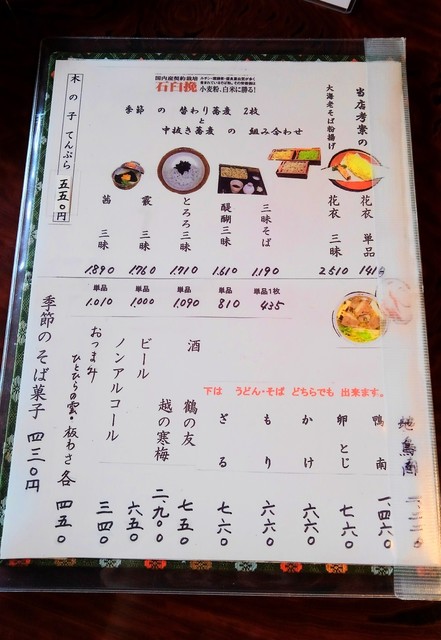 国内産契約栽培
石臼挽
小麦粉、白米に勝る!
季節の 替わり蕎麦 2枚
と
中抜き蕎麦 の 組み合わせ
木の子 てんぷら 五五〇円
当店考案の
大海老そば粉揚げ
花衣 単品
花衣 三昧 2510
三昧そば 1,190
醍醐三昧 1,610
とろろ三昧 1,710
霞 三昧 1,760
茜 三昧 1,890
単品1枚 435
単品 810
単品 1,090
単品 1,000
単品 1,010
下は うどん・そば どちらでも 出来ます。
鴨南 一四六〇
卵とじ 七六〇
かけ 六六〇
もり 六六〇
ざる 七六〇
酒 鶴の友 七五〇
越の寒梅 二、九〇〇
ビール 六五〇
ノンアルコール 三四〇
おつまみ
ひとひらの雲・板わさ各 四五〇
季節のそば菓子 四三〇円